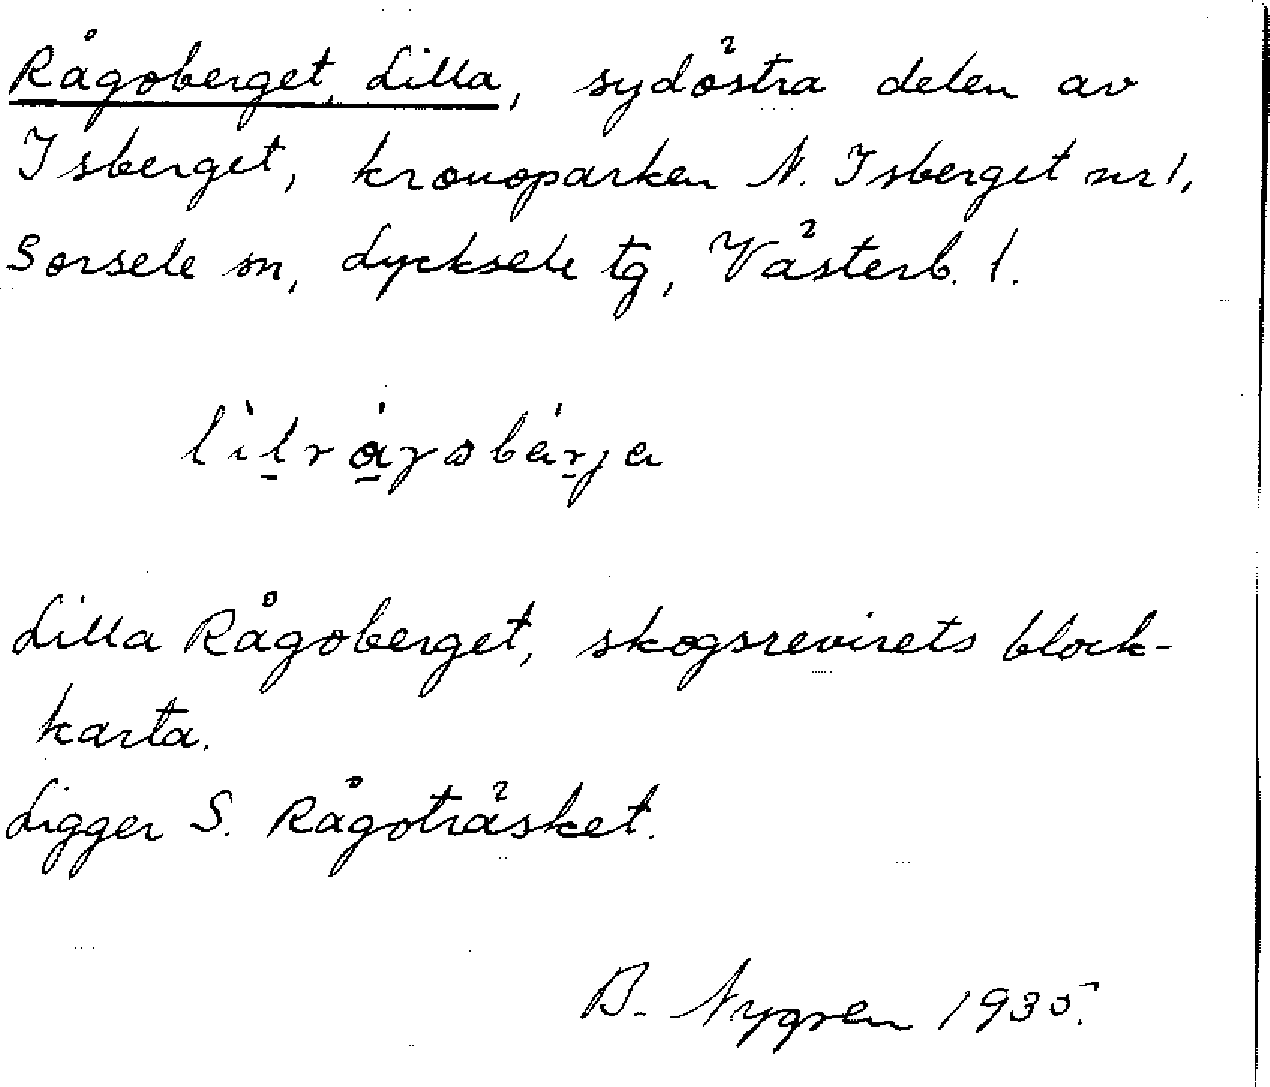 Rågoberget, Lilla, sydöstra delen av
Isberget, kronoparken N. Isberget nr 1,
Sorsele sn, Lycksele tg, Västerb. l.
Lilla Rågoberget, skogsrevirets block-
karta.
Ligger S. Rågoträsket.
B. Nygren 1935.